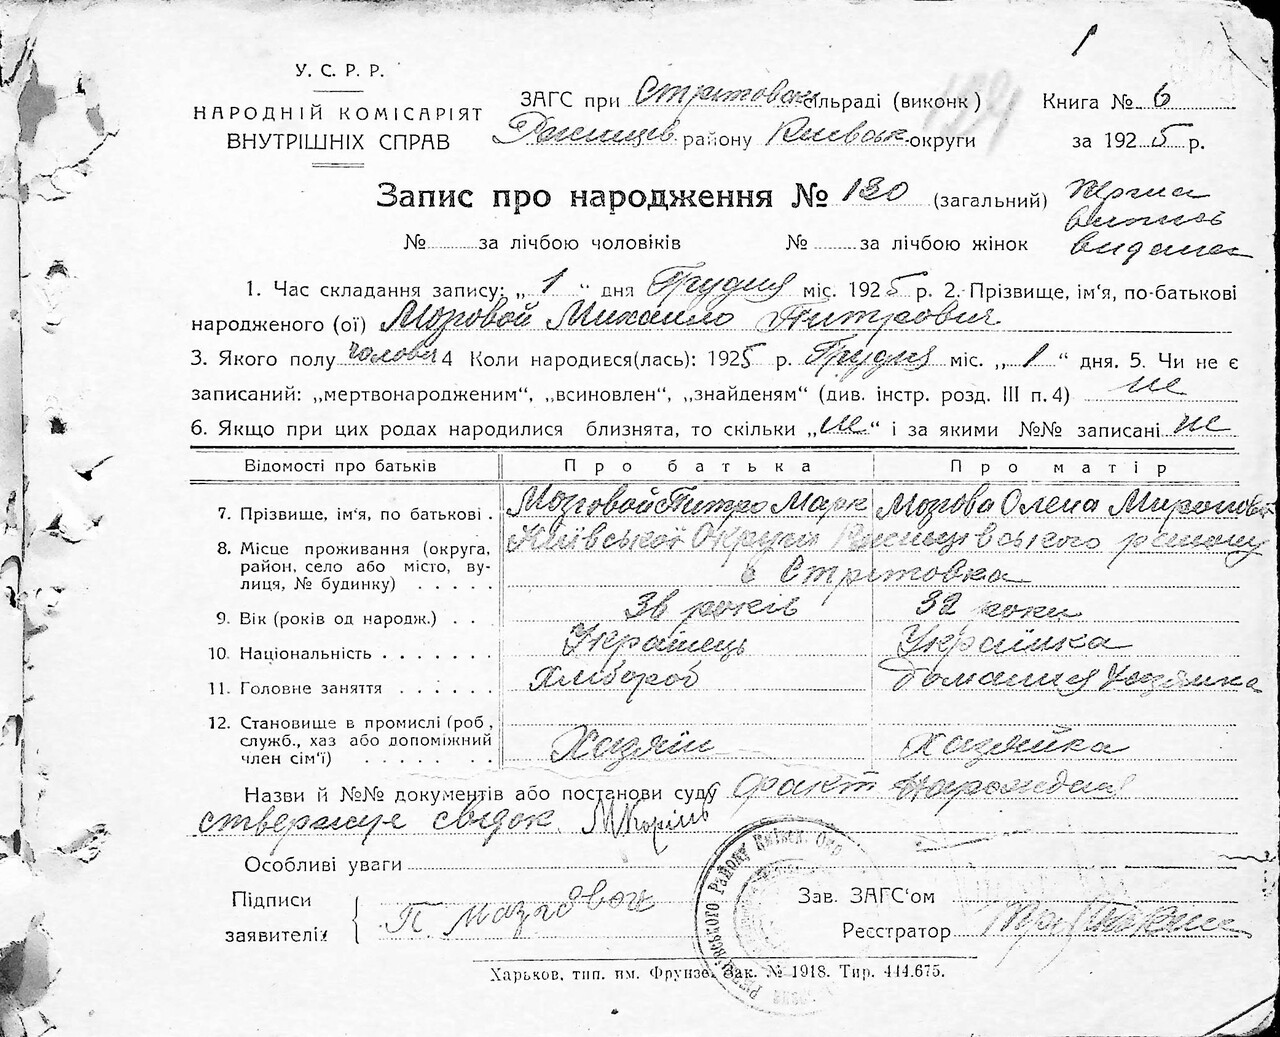 1
У. С. Р. Р.
НАРОДНІЙ КОМІСАРІЯТ
ВНУТРІШНІХ СПРАВ
ЗАГС при Стритовск сільраді (виконк)
Ржищів. району Київськ. округи
Книга № 6
за 1925 р.
Запис про народження № 130 (загальний)
Перша
випись
видана
№ за лічбою чоловіків № за лічбою жінок
1. Час складання запису: „1“ дня Грудня міс. 1925 р. 2. Прізвище, ім'я, по-батькові
народженого (ої) Мозговой Михаило Питрович
3. Якого полу чоловіч 4 Коли народився(лась): 1925 р. Грудня міс. „1“ дня. 5. Чи не є
записаний: „мертвонародженим“, „всиновлен“, „знайденям“ (див. інстр. розд. III п. 4) не
6. Якщо при цих родах народилися близнята, то скільки „не“ і за якими №№ записані не
Відомості про батьків Про батька Про матір
7. Прізвище, ім'я, по батькові . Мозговой Питро Марк Мозгова Олена Мироновн
8. Місце проживання (округа, Київської Округи Ржищівського району
район, село або місто, ву- с Стритовка
лиця, № будинку) . . . . .
9. Вік (років од народж.) . . 36 років 32 роки
10. Національність . . . . . . . Українець Українка
11. Головне заняття . . . . . Хлібороб Домашня Хазяйка
12. Становище в промислі (роб,
служб., хаз або допоміжний Хазяїн Хазяйка
член сім'ї) . . . . . .
Назви й №№ документів або постанови суду факт Народження
стверджує свідок
Особливі уваги
Підписи
заявителів П. Мазговой
Зав. ЗАГС'ом
Реєстратор
Району Київськ. Окр
Харьков, тип. им. Фрунзе. Зак. № 1918. Тир. 444.675.